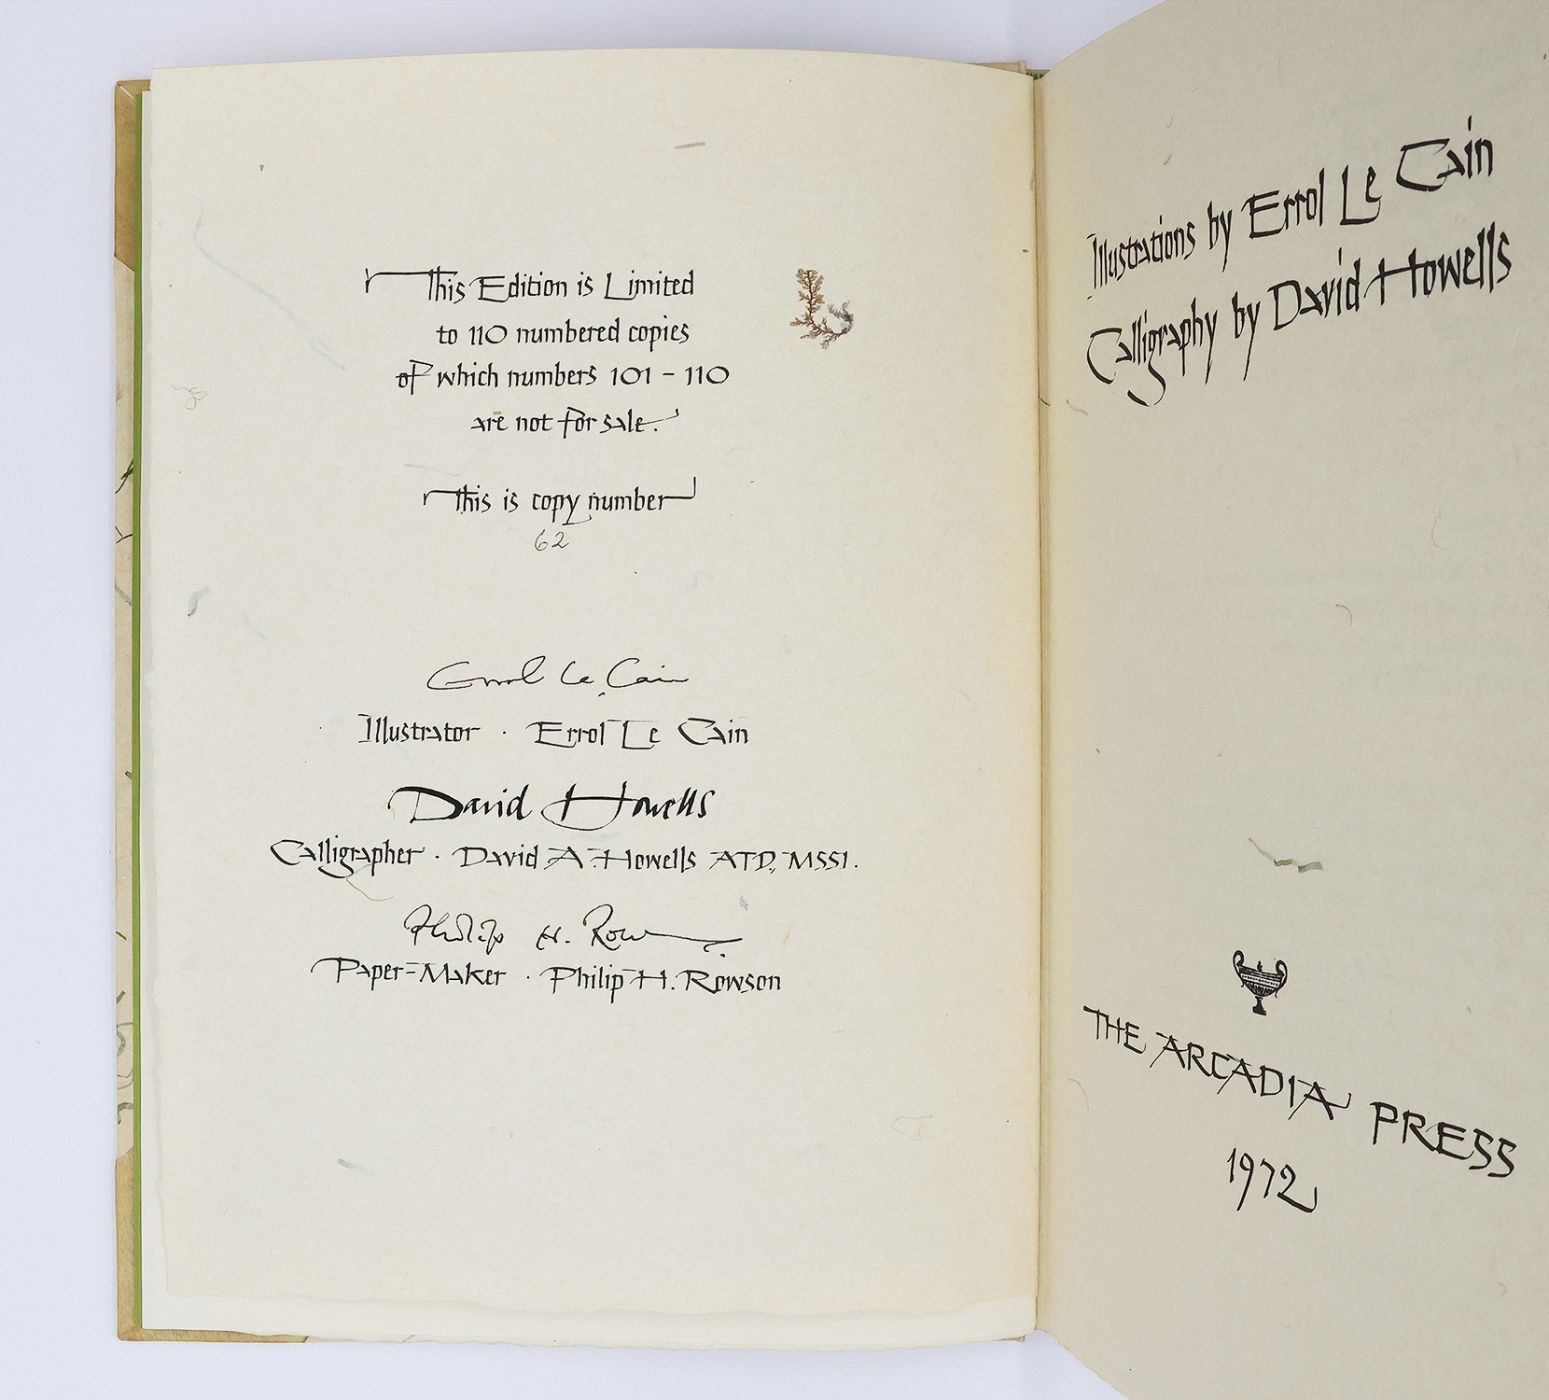 This Edition is Limited
to 110 numbered copies
of which numbers 101 - 110
are not for sale.
This is copy number
62
Errol Le Cain
Illustrator · Errol Le Cain
David Howells
Calligrapher · David A. Howells ATD, MSSI.
Philip H. Row
Paper-Maker · Philip H. Rowson
Illustrations by Errol Le Cain
Calligraphy by David Howells
THE ARCADIA PRESS
1972